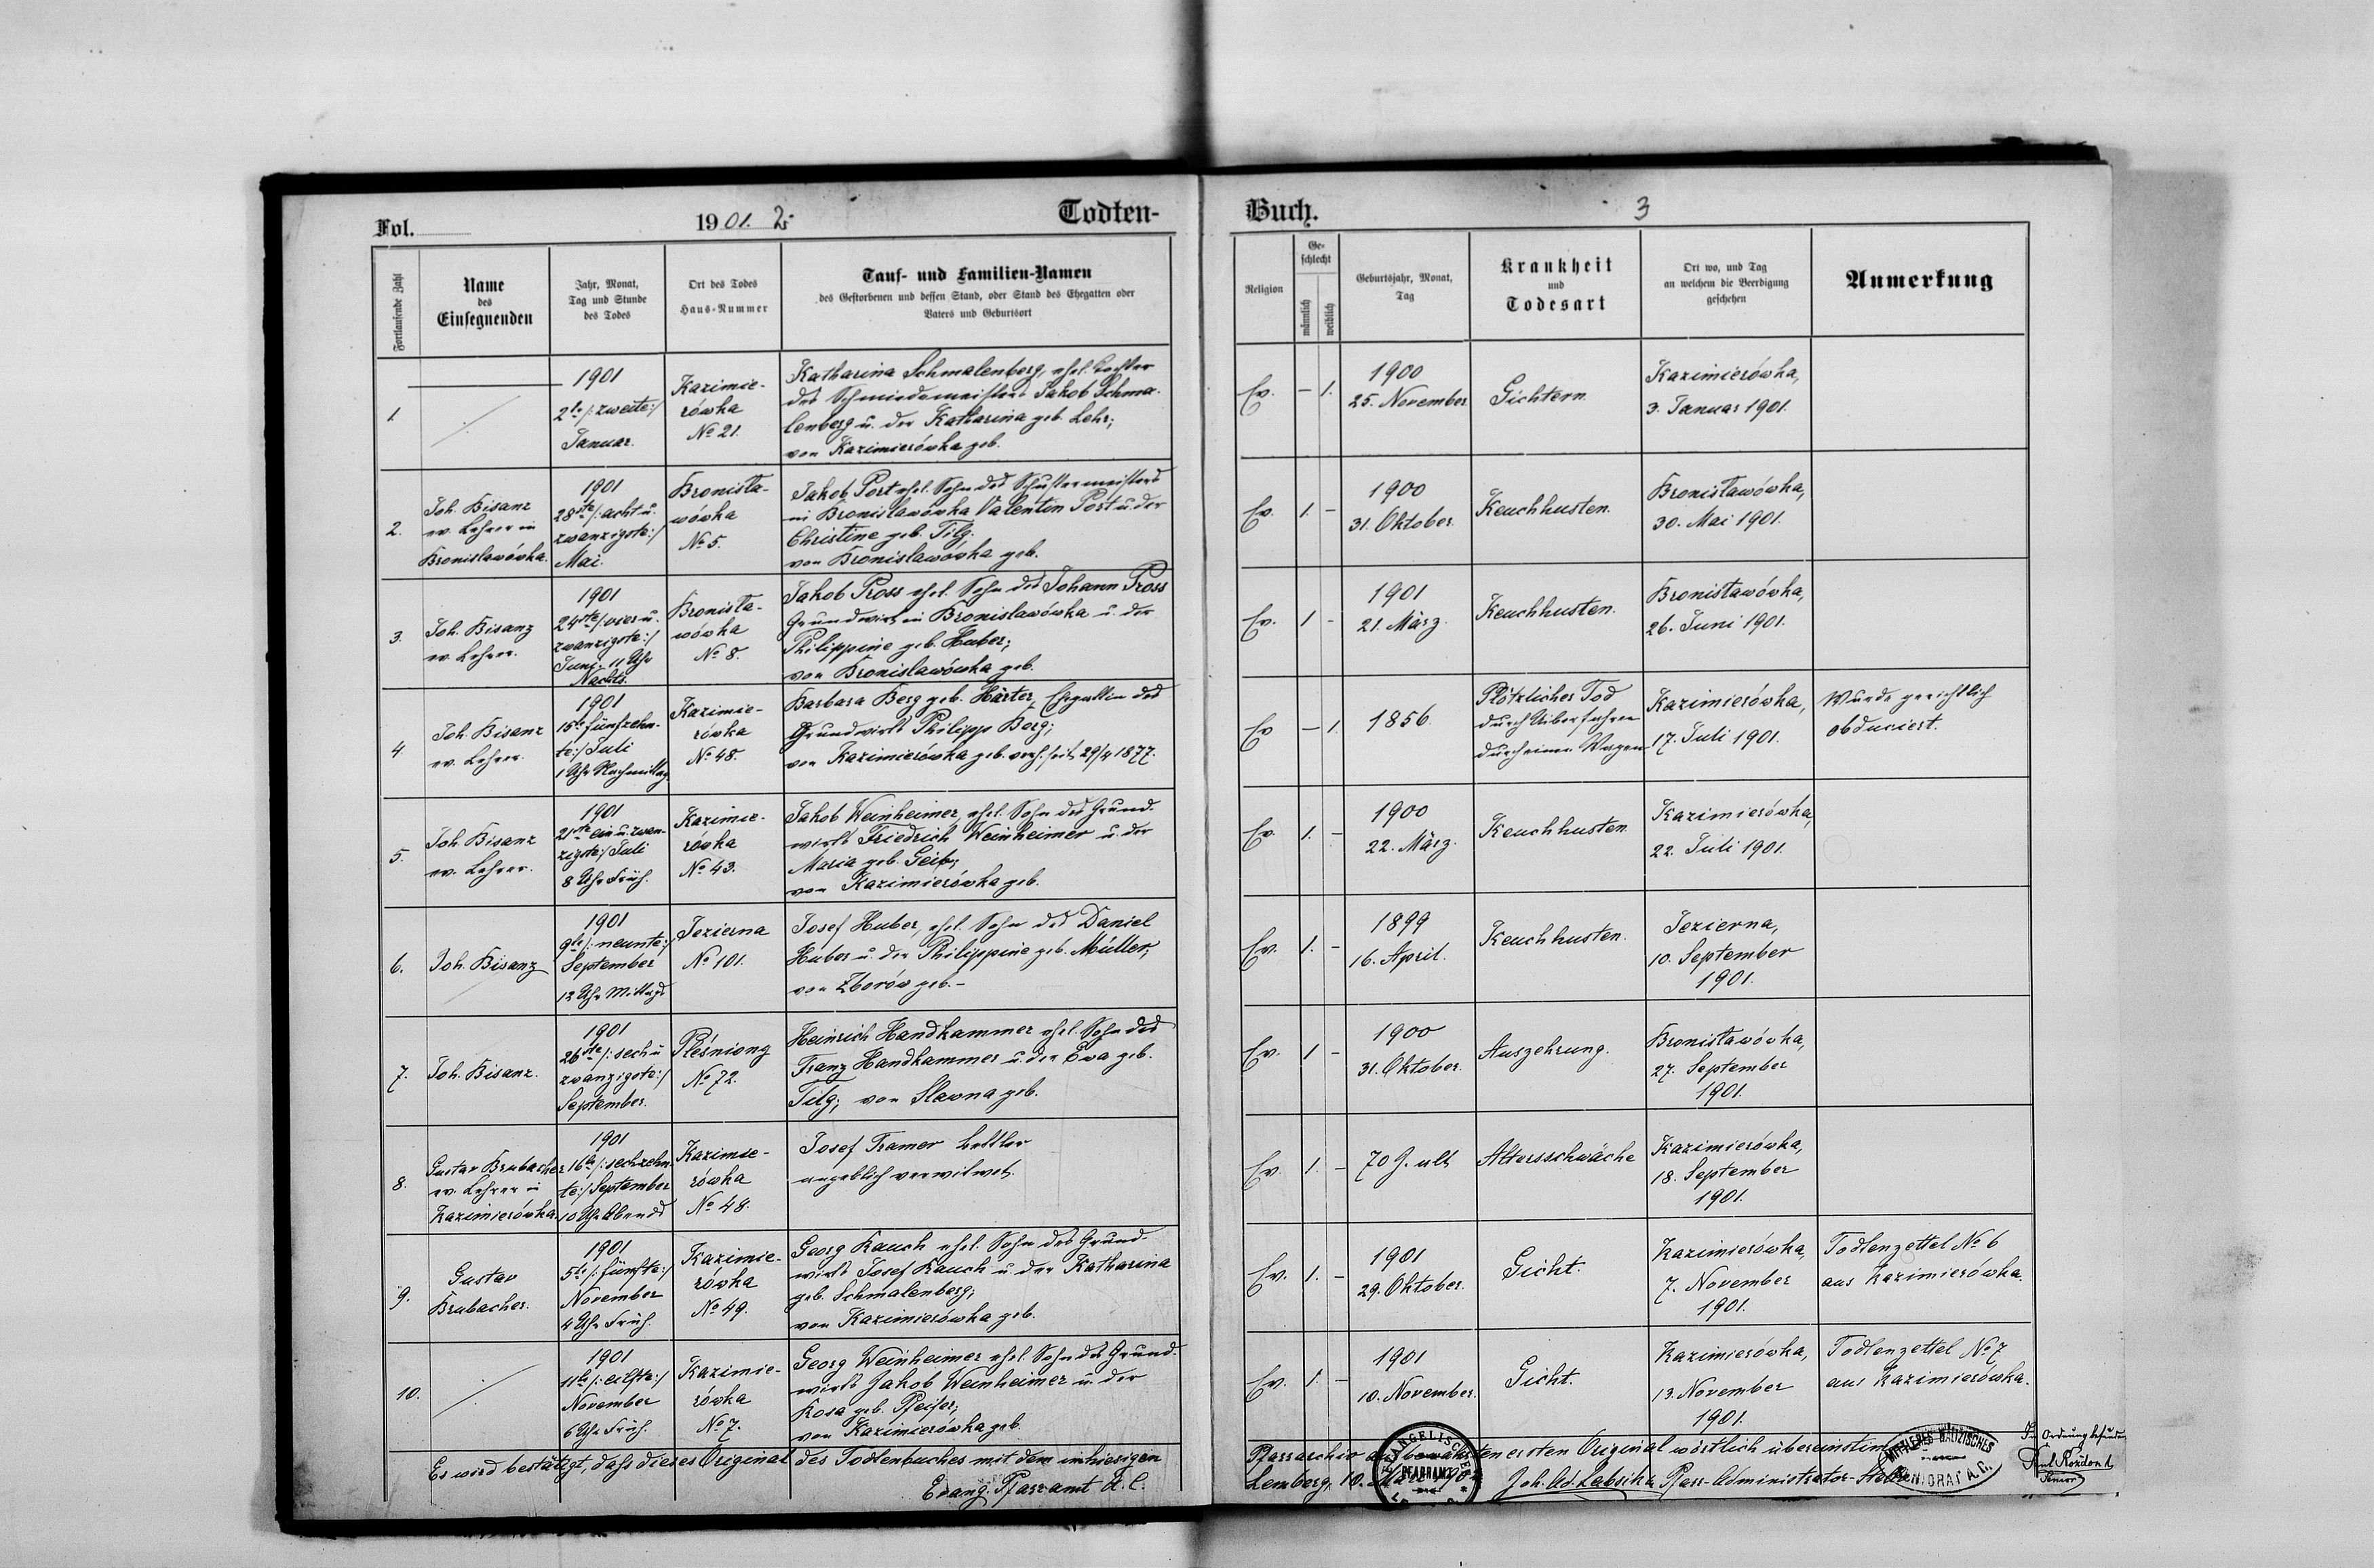 Fol.
1901. 2.
Todten-
Fortlaufende Zahl
Name
des
Einsegnenden
Jahr, Monat,
Tag und Stunde
des Todes
Ort des Todes
Haus-Nummer
Tauf- und Familien-Namen
des Gestorbenen und dessen Stand, oder Stand des Ehegatten oder
Vaters und Geburtsort
1.
1901
2te /: zweite :/
Januar.
Kazimie-
rówka
No 21.
Katharina Schmalenberg, ehel. Tochter
des Schmiedemeisters Jakob Schma-
lenberg u. der Katharina geb. Lehr;
von Kazimierówka geb.
2.
Joh. Bisanz
ev. Lehrer in
Bronislawówka.
1901
28ste /: acht u.
zwanzigste :/
Mai.
Bronisła-
wówka
No 5.
Jakob Port ehel. Sohn des Schustermeisters
in Bronislawówka Valentin Port u. der
Christine geb. Tilg;
von Bronislawówka geb.
3.
Joh. Bisanz
ev. Lehrer.
1901
24ste /: vier u.
zwanzigste :/
Juni, 11 Uhr
Nachts.
Bronisła-
wówka
No 8.
Jakob Pross ehel. Sohn des Johann Pross
Grundwirt in Bronislawówka u. der
Philippine geb. Huber;
von Bronislawówka geb.
4
Joh. Bisanz
ev. Lehrer.
1901
15te fünfzehn-
te :/ Juli
1 Uhr Nachmittag
Kazimie-
rówka
No 48.
Barbara Berg geb. Härter, Ehegattin des
Grundwirts Philipp Berg;
von Kazimierówka geb. verh. seit 29/4 1877.
5.
Joh. Bisanz
ev. Lehrer.
1901
21ste ein u. zwan-
zigste :/ Juli
8 Uhr Früh.
Kazimie-
rówka
No 43.
Jakob Weinheimer, ehel. Sohn des Grund-
wirts Friedrich Weinheimer u. der
Maria geb. Geib;
von Kazimierówka geb.
6.
Joh. Bisanz
1901
9te /: neunte :/
September
12 Uhr Mittags
Jezierna
No 101.
Josef Huber, ehel. Sohn des Daniel
Huber u. der Philippine geb. Müller;
von Zborów geb. -
7.
Joh. Bisanz.
1901
26ste /: sech u
zwanzigste :/
September.
Pleśniony
No 72.
Heinrich Handkammer ehel. Sohn des
Franz Handkammer u. der Eva geb.
Tilg; von Slawna geb.
8.
Gustav Brubacher
ev. Lehrer in
Kazimierówka.
1901
16te /: sechzehn-
te :/ September
10 Uhr Abends
Kazimie-
rówka
No 48.
Josef Framer Bettler
angeblich verwitwet.
9.
Gustav
Brubacher.
1901
5te /: fünfte :/
November
4 Uhr Früh.
Kazimie-
rówka
No 49.
Georg Rauch ehel. Sohn des Grund-
wirts Josef Rauch u. der Katharina
geb. Schmalenberg;
von Kazimierówka geb.
10.
1901
11te /: eilfte :/
November
6 Uhr Früh.
Kazimie-
rówka
No 7.
Georg Weinheimer ehel. Sohn des Grund-
wirts Jakob Weinheimer u. der
Rosa geb. Pfeifer;
von Kazimierówka geb.
Es wird bestätigt, daſs dieses Original des Todtenbuches mit dem im hiesigen
Evang. Pfarramt A. C.
Buch.
3
Religion
Ge-
schlecht
männlich
weiblich
Geburtsjahr, Monat,
Tag
Krankheit
und
Todesart
Ort wo, und Tag
an welchem die Beerdigung
geschehen
Anmerkung
Ev. - 1.
1900
25. November.
Gichtern.
Kazimierówka,
3. Januar 1901.
Ev. 1. -
1900
31. Oktober.
Keuchhusten.
Bronisławówka,
30. Mai 1901.
Ev. 1 -
1901
21. März.
Keuchhusten.
Bronisławówka,
26. Juni 1901.
Ev - 1.
1856.
Plötzlicher Tod
durch Überfahren
durch einen Wagen
Kazimierówka,
17. Juli 1901.
Wurde gerichtlich
obduciert.
Ev. 1. -
1900
22. März.
Keuchhusten.
Kazimierówka,
22. Juli 1901.
Ev. 1. -
1899
16. April.
Keuchhusten.
Jezierna,
10. September
1901.
Ev. 1 -
1900
31. Oktober.
Auszehrung.
Bronisławówka,
27. September
1901.
Ev. 1. -
70 J. alt
Altersschwäche
Kazimierówka,
18. September
1901.
Ev. 1. -
1901
29. Oktober.
Gicht.
Kazimierówka,
7. November
1901.
Todtenzettel No 6
aus Kazimierówka.
Ev. 1. -
1901
10. November.
Gicht.
Kazimierówka,
13. November
1901.
Todtenzettel No 7
aus Kazimierówka.
Pfarrarchiv aufbewahrten ersten Original wörtlich übereinstimmt
Lemberg, 10.
EVANGELISCHES
PFARRAMT
Pfarr-Administrator-Stellv.
MITTLERES GALIZISCHES
SENIORAT A. C.
In Ordnung befunden
Senior